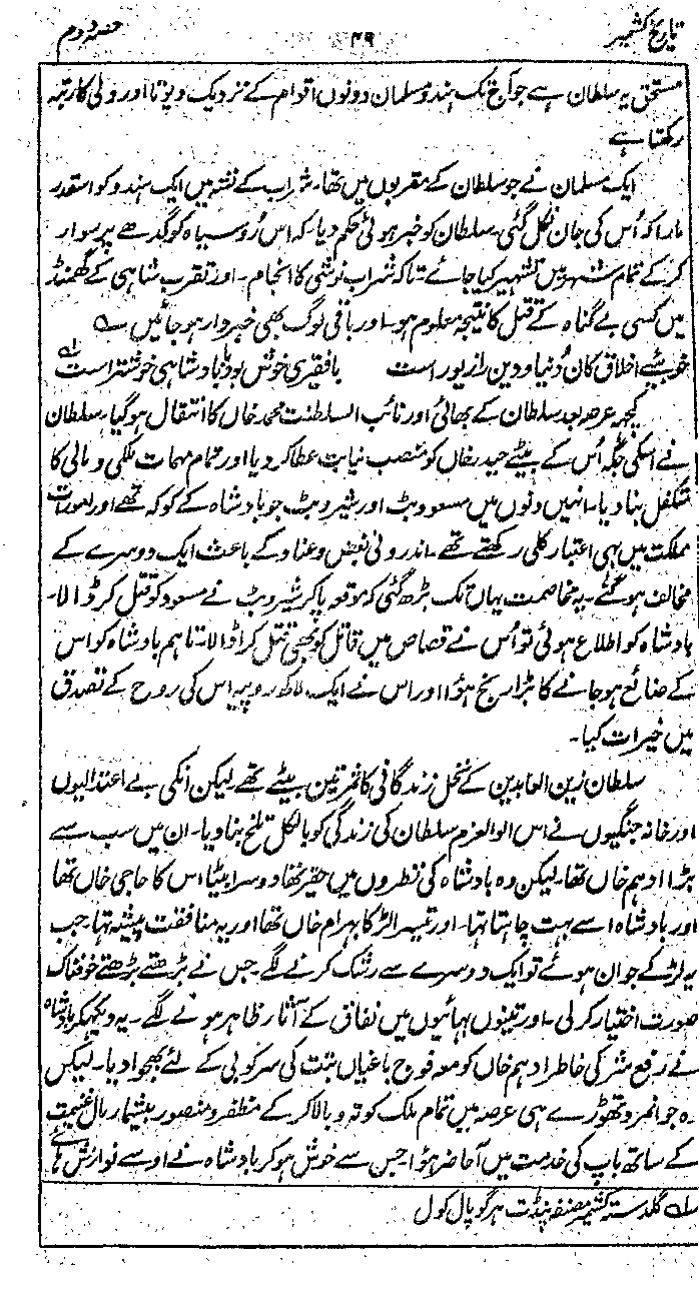 تاریخ کشمیر
۴۹
حصہ دوم
مستحق یہ سلطان ہے جو آج تک ہندو مسلمان دونوں اقوام کے نزدیک دیوتا اور ولی کا رتبہ
رکھتا ہے
ایک مسلمان نے جو سلطان کے مقربوں میں تھا۔ شراب کے نشہ میں ایک ہندو کو اسقدر
مارا کہ اُس کی جان نکل گئی۔ سلطان کو خبر ہوئی حکم دیا۔ کہ اس رُوسیاہ کو گدھے پر سوار
کر کے تمام شہر میں تشہیر کیا جائے۔ تاکہ شراب نوشی کا انجام۔ اور تقرب شاہی کے گھمنڈ
میں کسی بے گناہ کے قتل کا نتیجہ معلوم ہو۔ اور باقی لوگ بھی خبردار ہو جائیں ؎
خوبیٔ اخلاق کان دُنیا و دین را زیور است با فقیری خوش بود با بادشاہی خوشتر است لہ
کچھ عرصہ بعد سلطان کے بھائی اور نائب السلطنت محمد خاں کا انتقال ہو گیا۔ سلطان
نے اسکی جگہ اُس کے بیٹے حیدر خاں کو منصب نیابت عطا کر دیا اور تمام مہمات ملکی و مالی کا
متکفل بنا دیا۔ انہیں دنوں میں مسعود بٹ اور شیر و بٹ جو بادشاہ کے کوکہ تھے اور امورات
مملکت میں بھی اعتبار کلی رکھتے تھے۔ اندرونی بغض و عناد کے باعث ایک دوسرے کے
مخالف ہو گئے۔ یہ مخاصمت یہاں تک بڑھ گئی کہ موقعہ پا کر شیر و بٹ نے مسعود کو قتل کر ڈالا۔
بادشاہ کو اطلاع ہوئی تو اُس نے قصاص میں قاتل کو بھی قتل کرا ڈالا۔ تاہم بادشاہ کو اس
کے ضائع ہو جانے کا بڑا رنج ہؤا اور اس نے ایک لاکھ روپیہ اس کی روح کے تصدق
میں خیرات کیا۔
سلطان زین العابدین کے نخل زندگانی کا ثمر تین بیٹے تھے لیکن انکی بے اعتدالیوں
اور خانہ جنگیوں نے اس الوالعزم سلطان کی زندگی کو بالکل تلخ بنا دیا۔ ان میں سب سے
بڑا ادہم خاں تھا۔ لیکن وہ بادشاہ کی نظروں میں حقیر تھا دوسرا بیٹا اس کا حاجی خاں تھا
اور بادشاہ اسے بہت چاہتا تہا۔ اور تیسرا لڑکا بہرام خاں تھا اور یہ منافقت پیشہ تہا۔ جب
یہ لڑکے جوان ہوئے تو ایک دوسرے سے رشک کرنے لگے۔ جس نے بڑھتے بڑھتے خوفناک
صورت اختیار کر لی۔ اور تینوں بہائیوں میں نفاق کے آثار ظاہر ہونے لگے۔ یہ دیکھکر بادشاہ
نے رفع شر کی خاطر ادہم خاں کو معہ فوج باغیاں تبت کی سرکوبی کے لئے بھجوا دیا۔ لیکن
وہ جوانمرد تھوڑے ہی عرصہ میں تمام ملک کو تہ و بالا کر کے مظفر و منصور بیشمار مال غنیمت
کے ساتھ باپ کی خدمت میں آ حاضر ہؤا۔ جس سے خوش ہو کر بادشاہ نے اوسے نوازش ہائے
لہ گلدستہ کشمیر مصنفہ پنڈت ہرگوپال کول